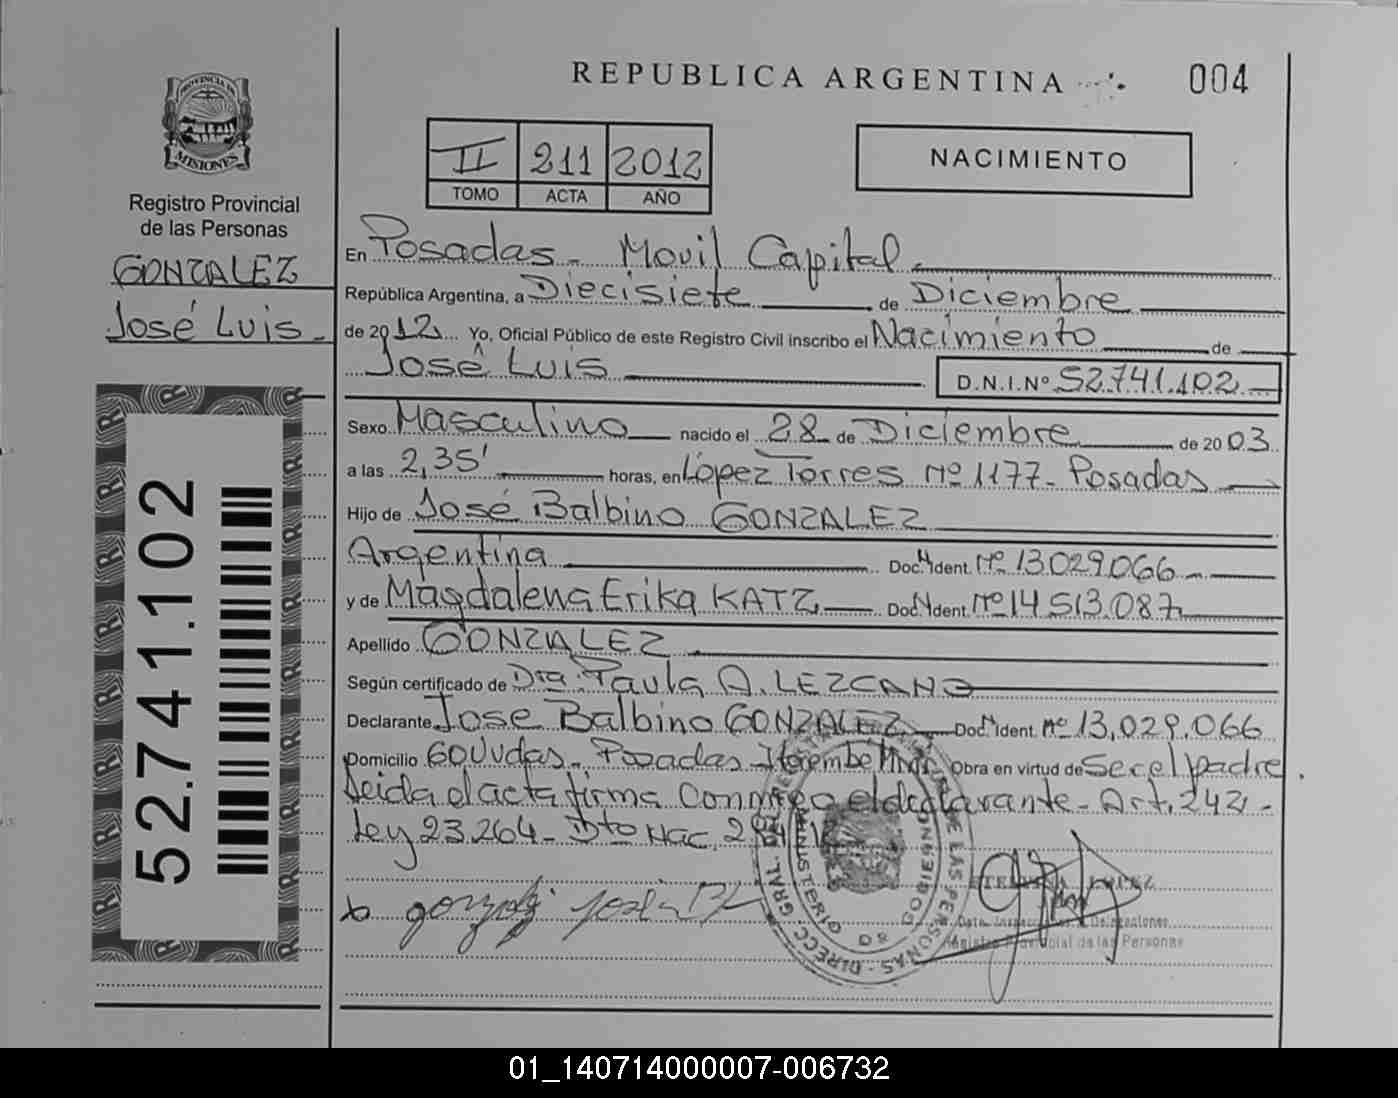 REPUBLICA ARGENTINA
004
PROVINCIA DE
MISIONES
Registro Provincial
de las Personas
GONZALEZ
José Luis
52.741.102
II 211 2012
TOMO ACTA AÑO
NACIMIENTO
En Posadas - Movil Capital
República Argentina, a Diecisiete de Diciembre
de 2012 Yo, Oficial Público de este Registro Civil inscribo el Nacimiento de
José Luis D.N.I.Nº 52.741.102
Sexo Masculino nacido el 28 de Diciembre de 2003
a las 2,35' horas, en López Torres Nº 1177 - Posadas
Hijo de José Balbino GONZALEZ
Argentina Doc. N. Ident. Nº 13.029.066
y de Magdalena Erika KATZ Doc. N. Ident. Nº 14.513.087
Apellido GONZALEZ
Según certificado de Dra. Paula A. LEZCANO
Declarante Jose Balbino GONZALEZ Doc. N. Ident. nº 13.029.066
Domicilio Posadas Obra en virtud de Ser el padre
Leida el acta firma Conmigo el declarante - Art. 242 -
Ley 23.264 - Dto Nac.
gonzalez
DIRECC. GRAL. DE LAS PERSONAS
MINISTERIO DE GOBIERNO
LOPEZ
Registro Provincial de las Personas
01_140714000007-006732